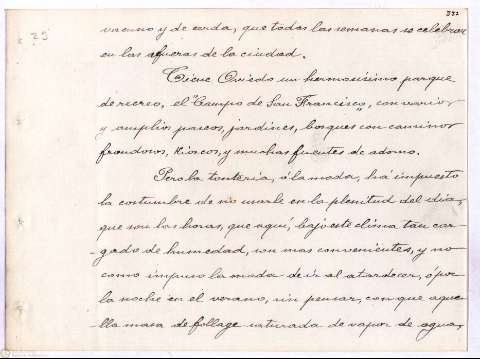 332
25
vacuno y de cerda, que todas las semanas se celebran
en las afueras de la ciudad.
Tiene Oviedo un hermosisimo parque
de recreo, el "Campo de San Francisco", con varios
y amplios paseos, jardines, bosques con caminos
frondosos, kioscos, y muchas fuentes de adorno.
Pero la tonteria, ó la moda, ha impuesto
la costumbre de no usarle en la plenitud del dia,
que son las horas, que aquí, bajo este clima tan car-
-gado de humedad, son mas convenientes, y no
como impuso la moda de ir al atardecer, ó por
la noche en el verano, sin pensar, con que aque-
-lla masa de follage saturada de vapor de agua,